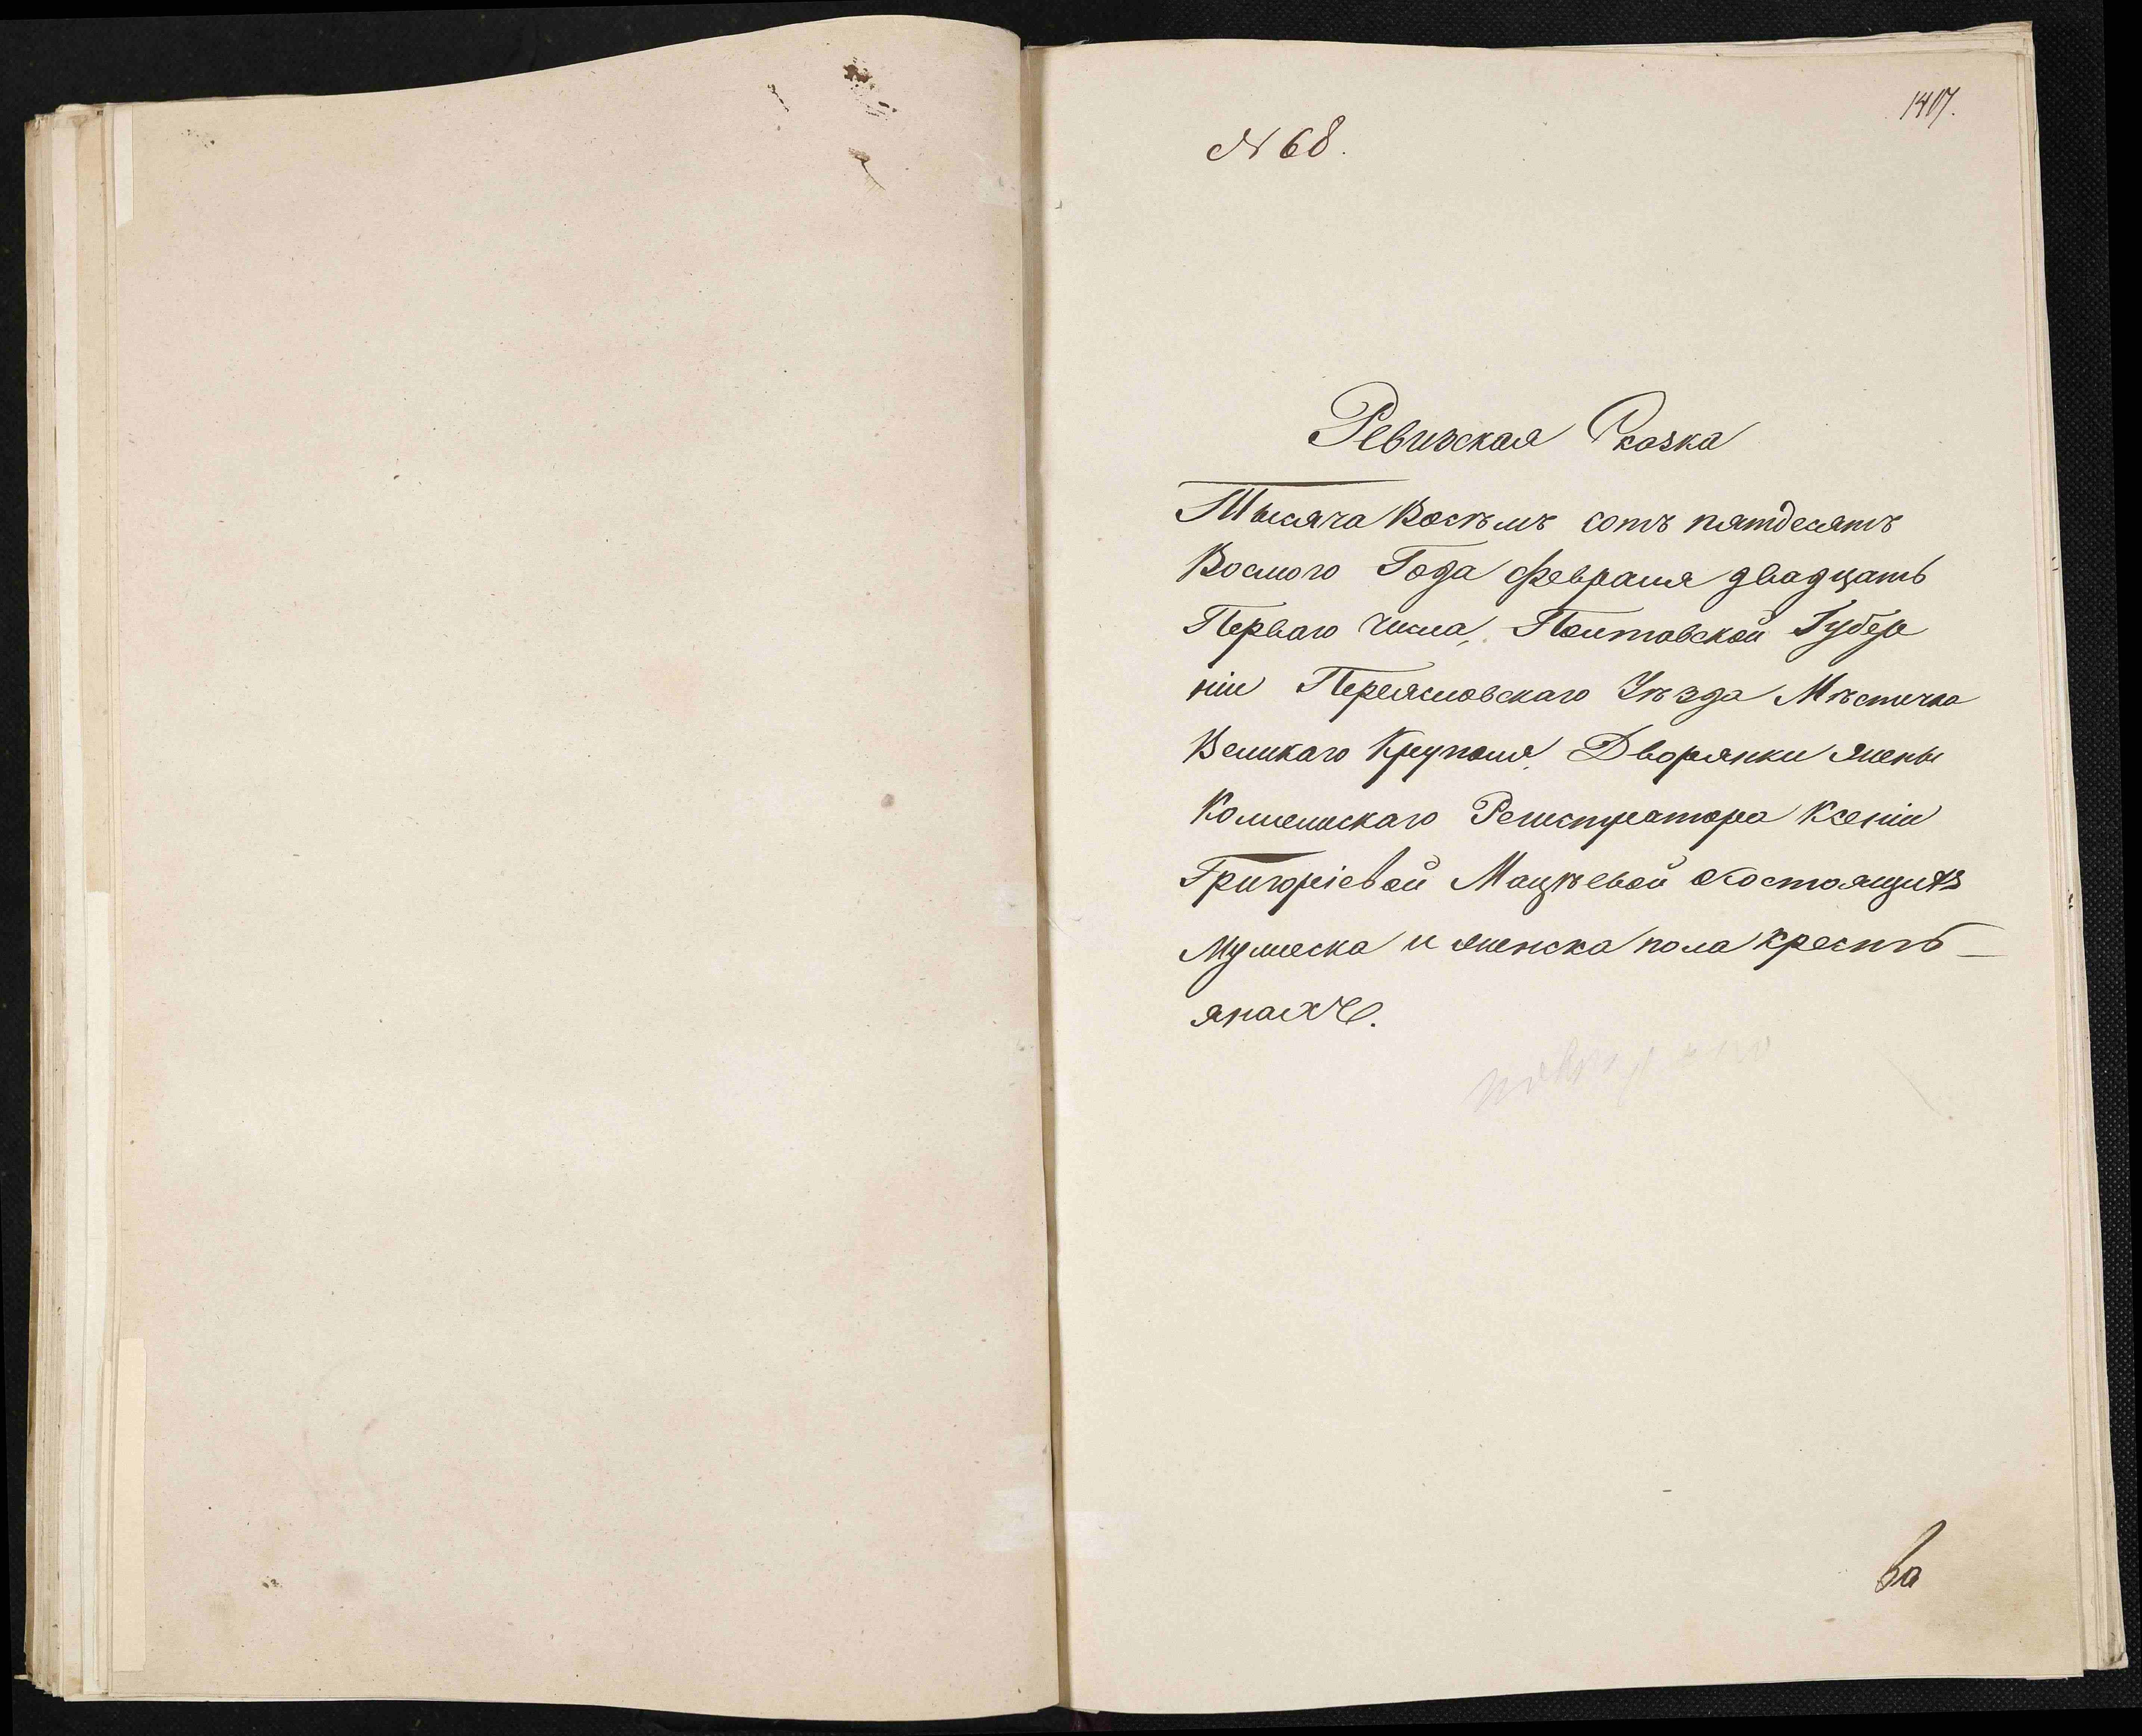 1417.
№ 68.
Ревизская Сказка
Тысяча Восѣмъ сотъ пятдесятъ
Восмого Года Февраля двадцать
Перваго числа, Полтавской Губер
ніи Переясловскаго Уѣзда Мѣстечка
Великаго Круполя, Дворянки жены
Коллежскаго Регистратора Ксеніи
Григоріевой Мацѣевой о состоящихъ
Мужеска и женска пола крестъ-
янахъ.
ва